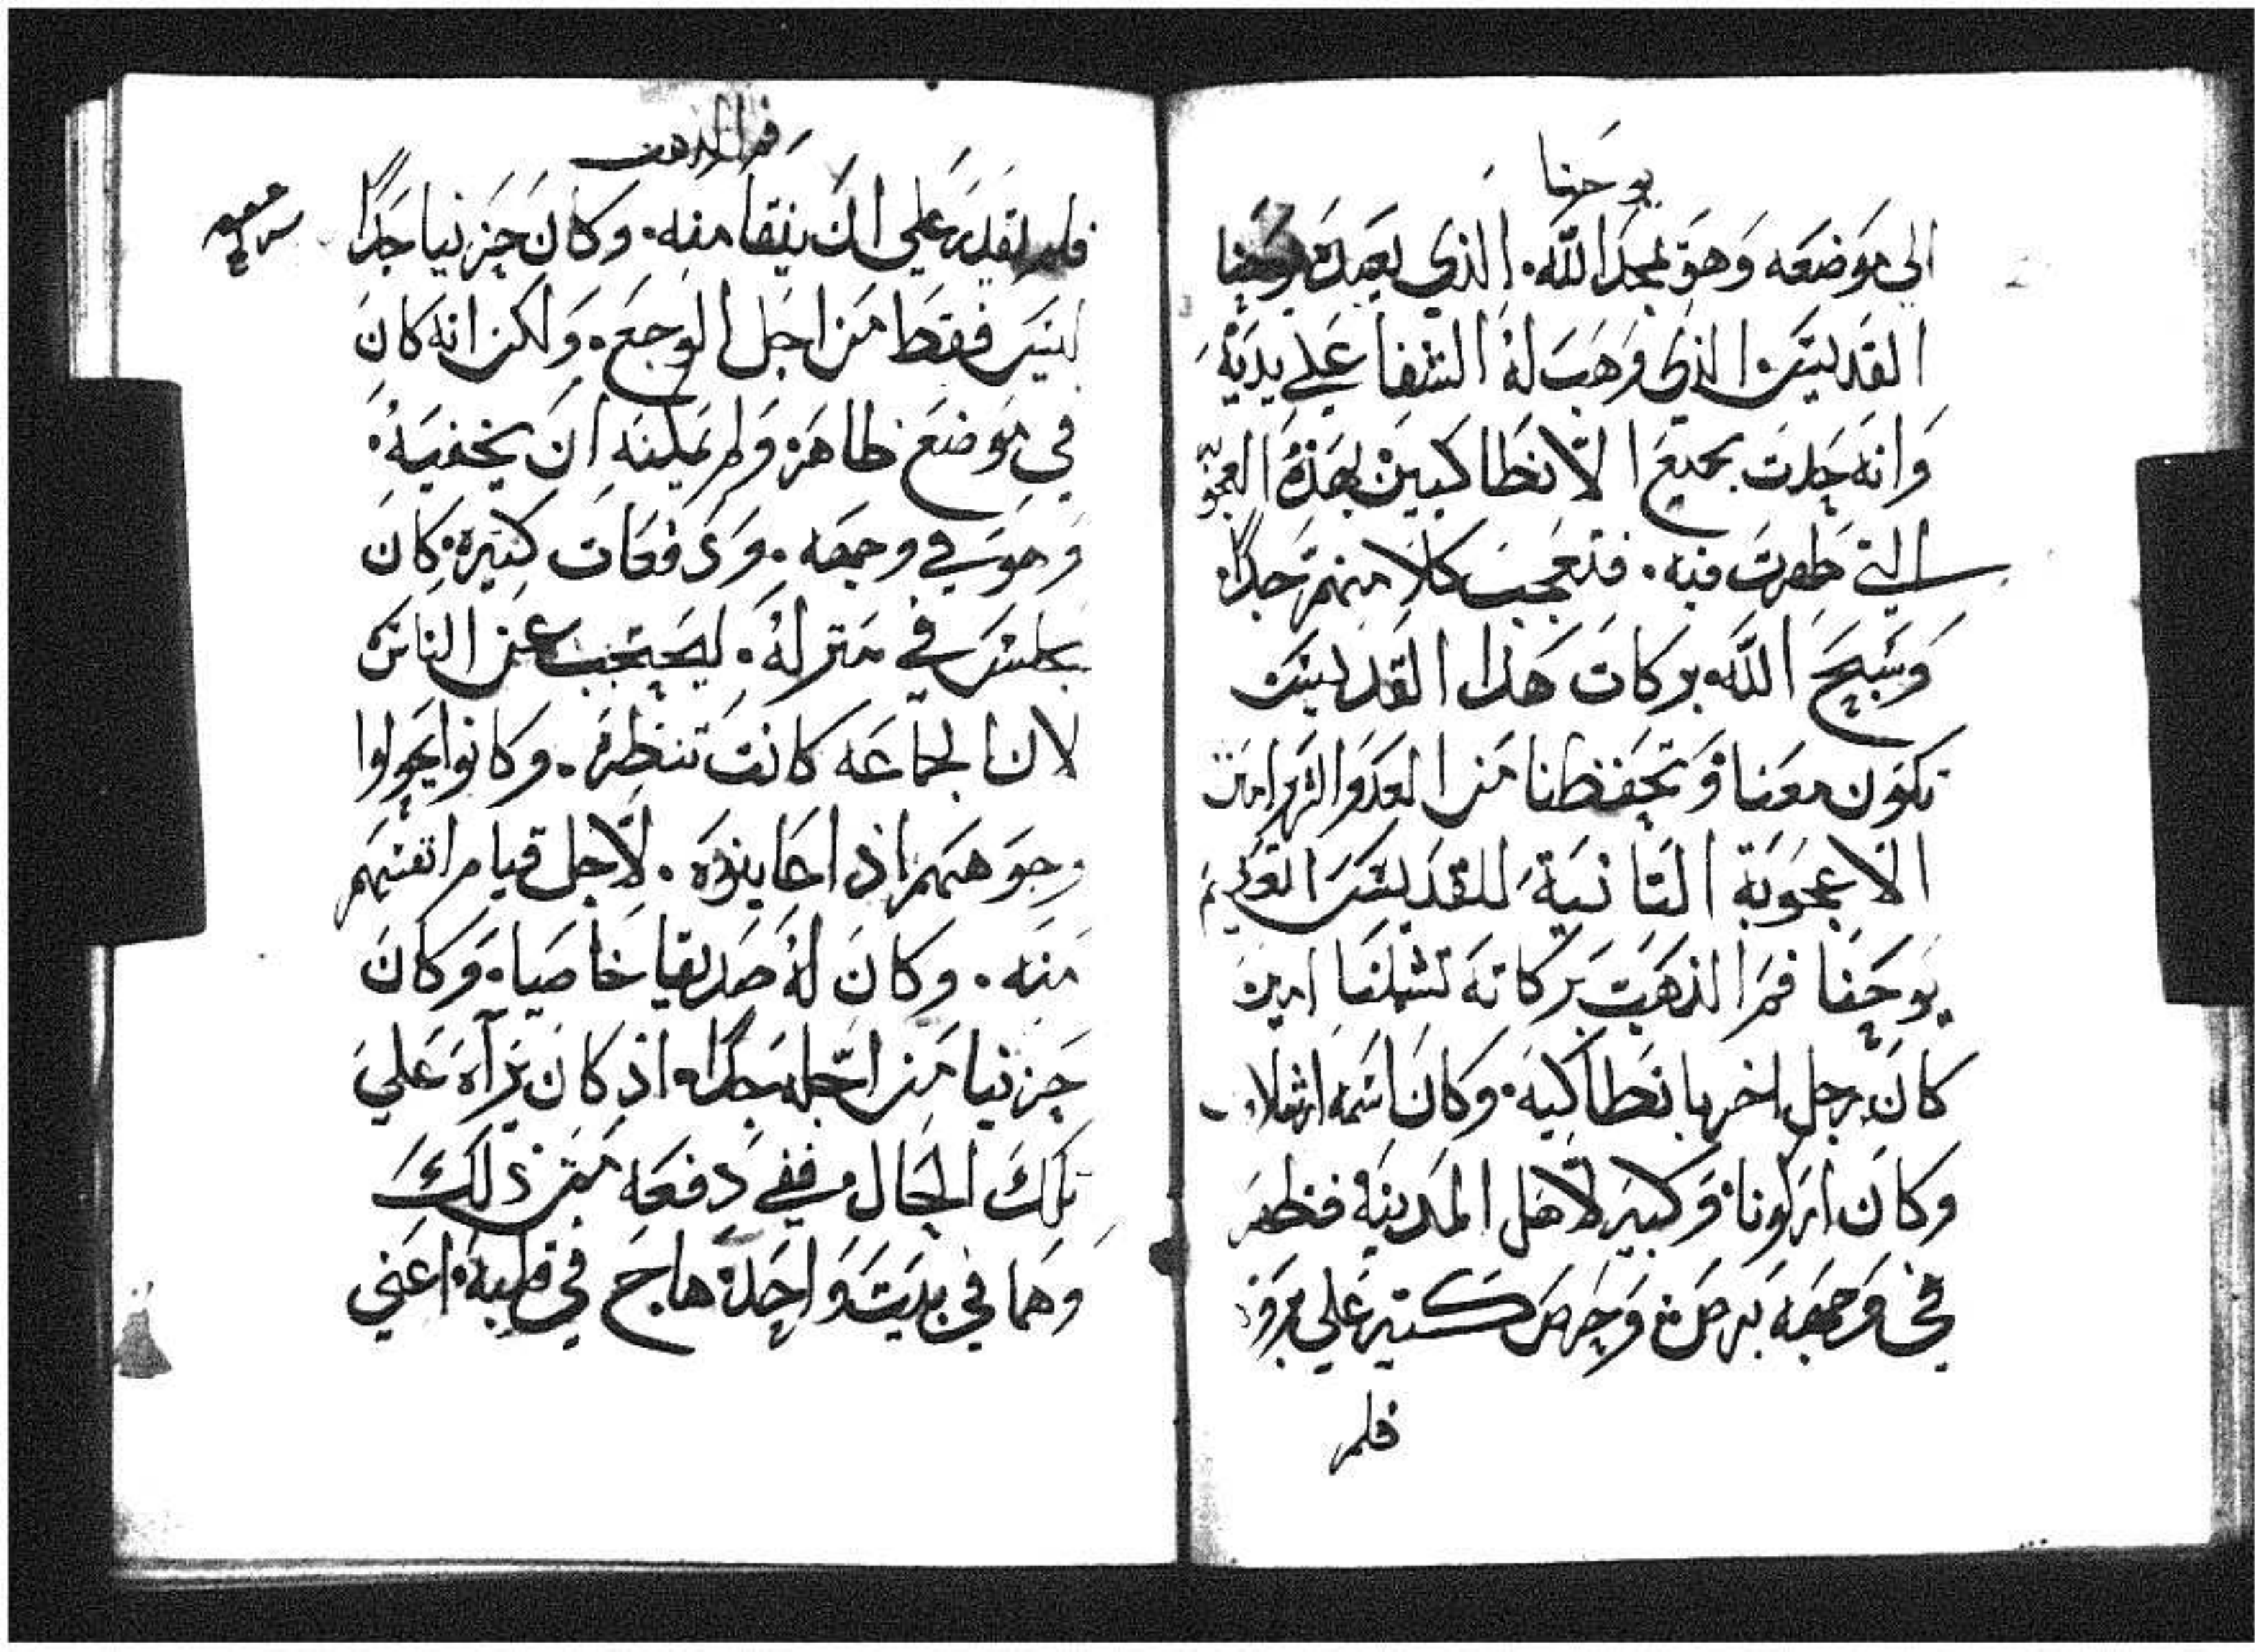 يوحنا
الى موضعه وهو يمجد الله. الذي بعبده يوحنا
القديس الذي وهب له الشفا علي يديه
وانه حدت بجميع الانطاكيين بهذه العجو
التي ظهرت فيه. فتعجب كلا منهم جدا.
وسبح الله بركات هذا القديس
تكون معنا وتحفظنا من العدو الشرير امين
الاعجوبة التانية للقديس العظيم
يوحنا فم الذهب بركاته تشملنا امين
كان رجل اخر بانطاكيه. وكان اسمه
وكان اركونا. وكبير لاهل المدينه فظهر
في وجهه برص. وحرص كتير علي بروه
فلم
فم الذهب
فلم يقدر علي ان ينقا منه. وكان حزنيا جدا
ليس فقط من اجل الوجع. ولكن انه كان
في موضع ظاهر ولم يمكنه ان يخفيه.
وهو في وجهه. ودفعات كتيره. كان
يجلس في منزله. ليحتجب عن الناس
لان الجماعه كانت تنظره. وكانوا يحولوا
وجوههم اذا عاينوه. لاجل قيام انفسهم
منه. وكان له صديقا خاصيا. وكان
حزنيا من اجله جدا. اذ كان يراه علي
تلك الحال. ففي دفعه من ذلك
وهما في بيت واحد هاج في قلبه. اعني